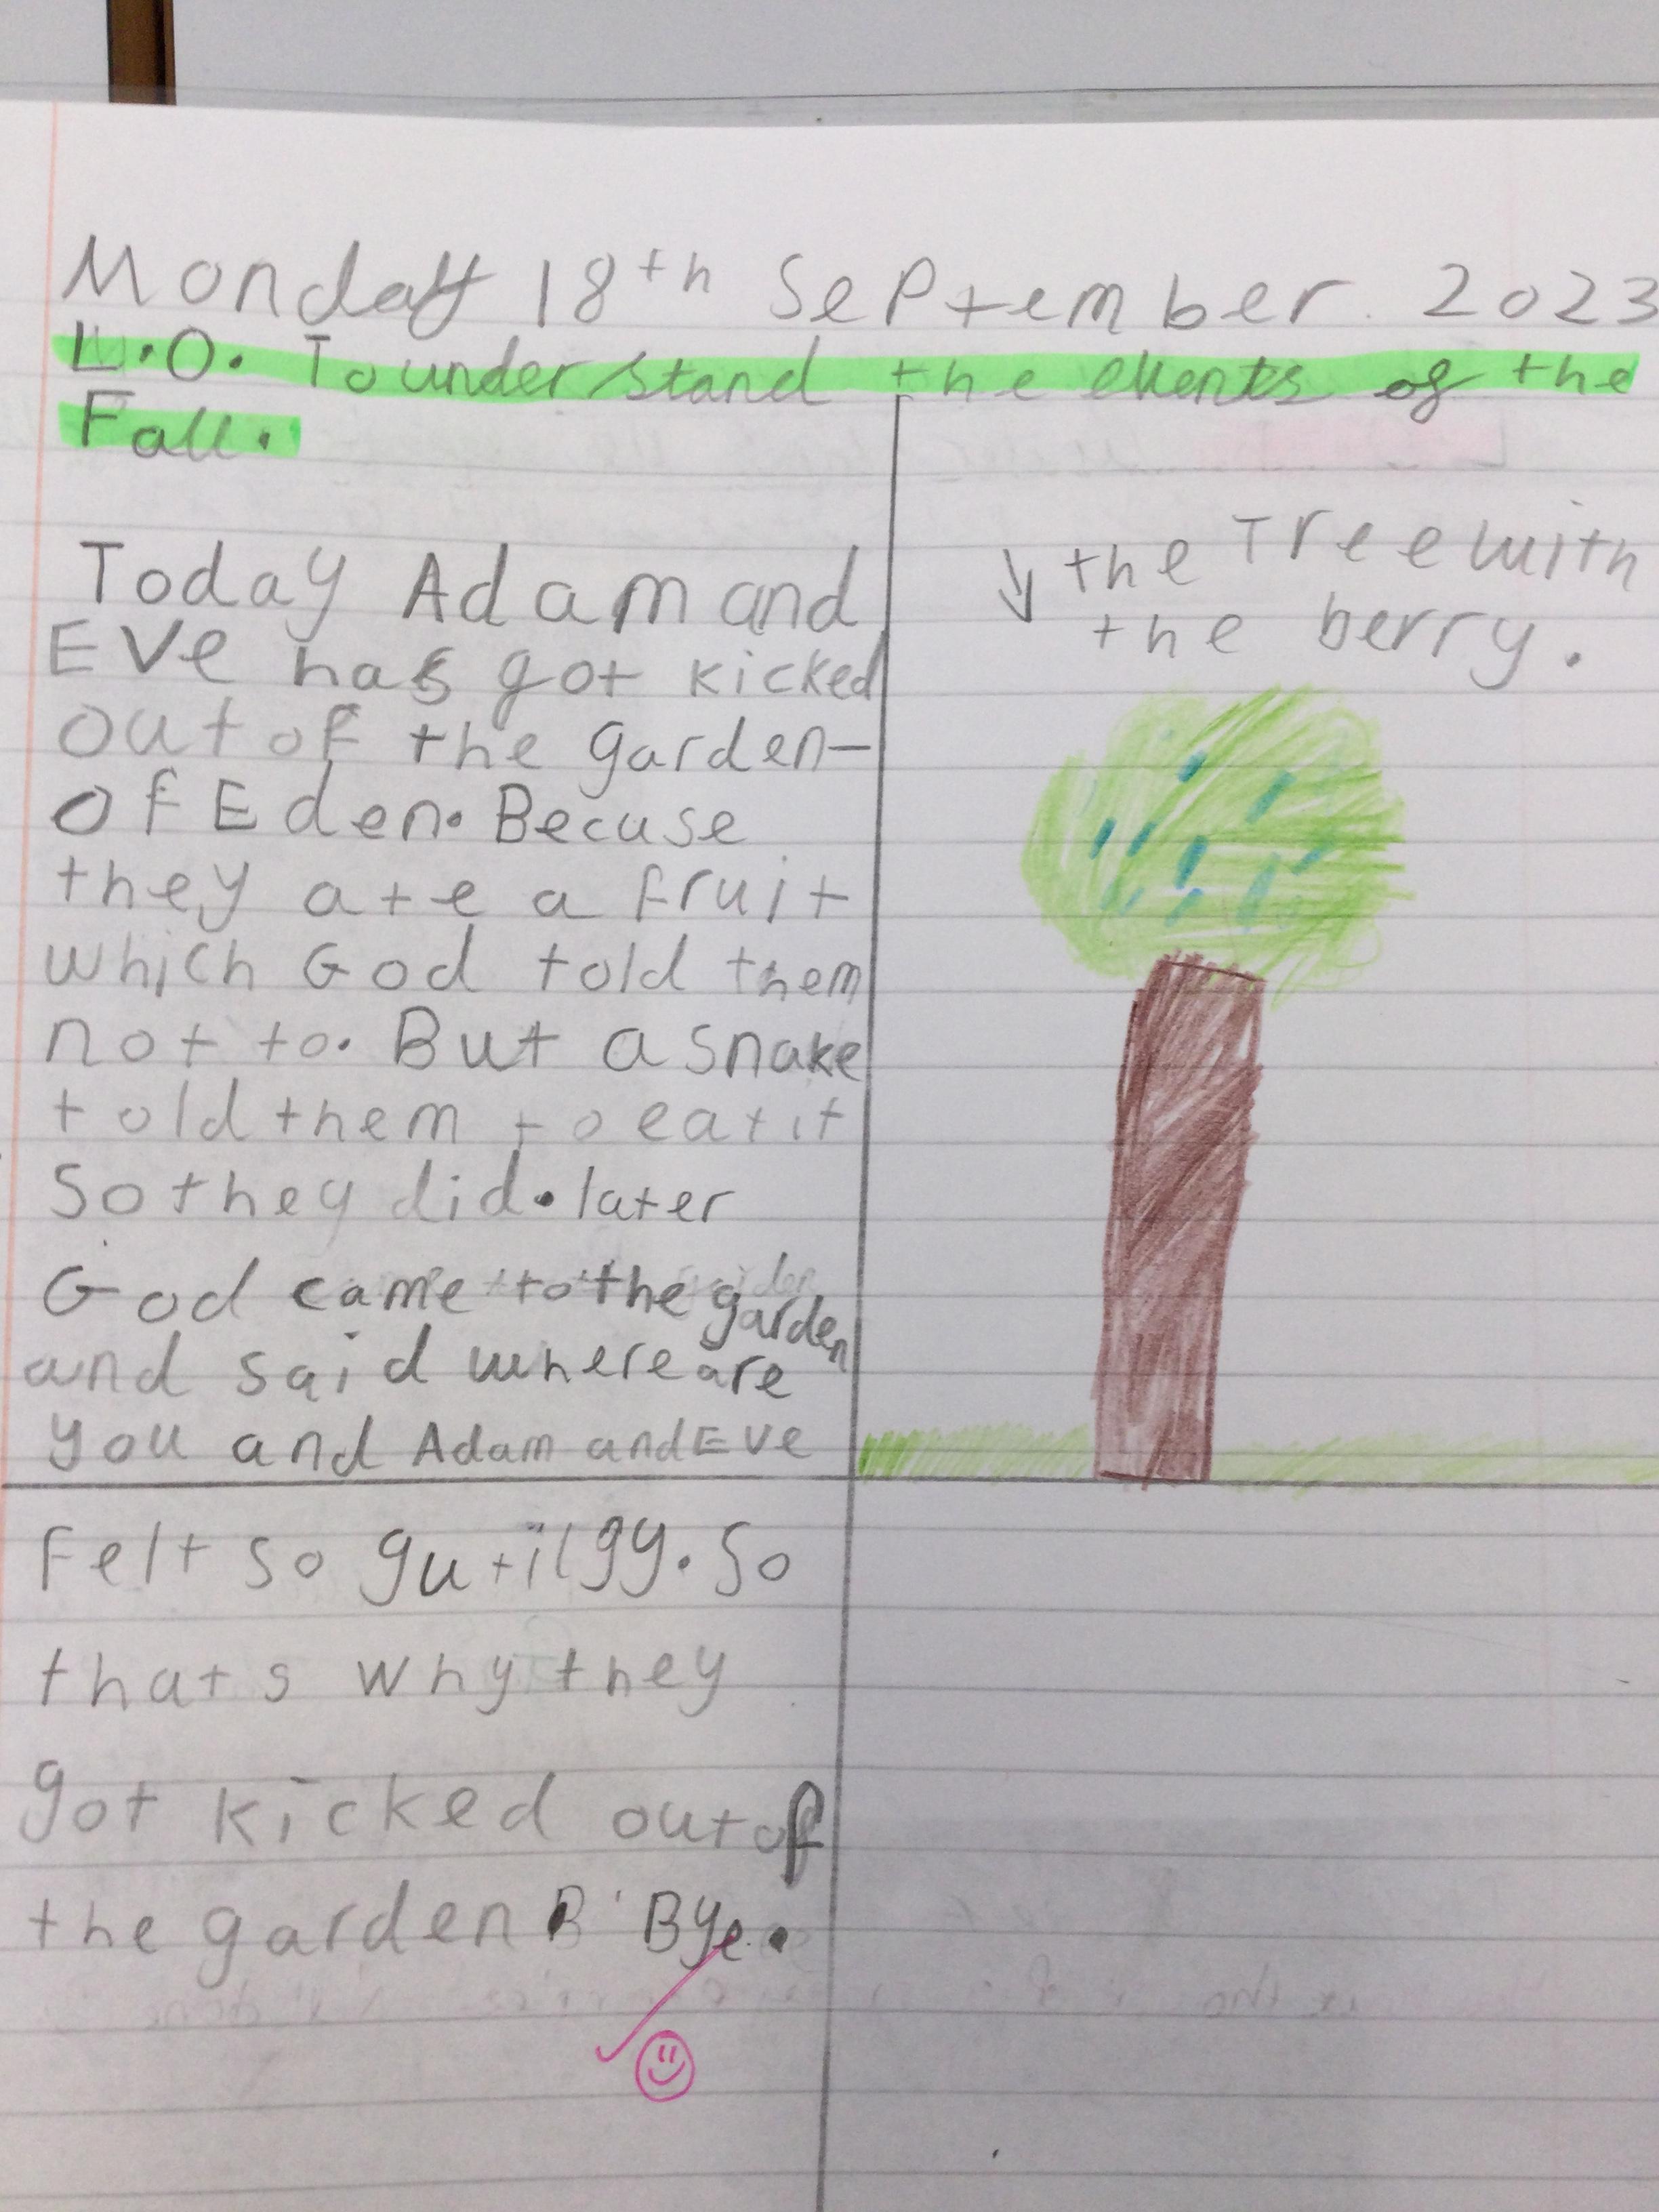 Monday 18th September 2023
L.O. To understand the events of the
Fall.
Today Adam and
Eve has got kicked
out of the garden-
of Eden. Becuse
they ate a fruit
which God told them
not to. But a snake
told them to eat it
so they did. later
God came to the garden
and said where are
you and Adam and Eve
felt so gutilgy. So
thats why they
got kicked out of
the garden B Bye.
↓ the Tree with
the berry.